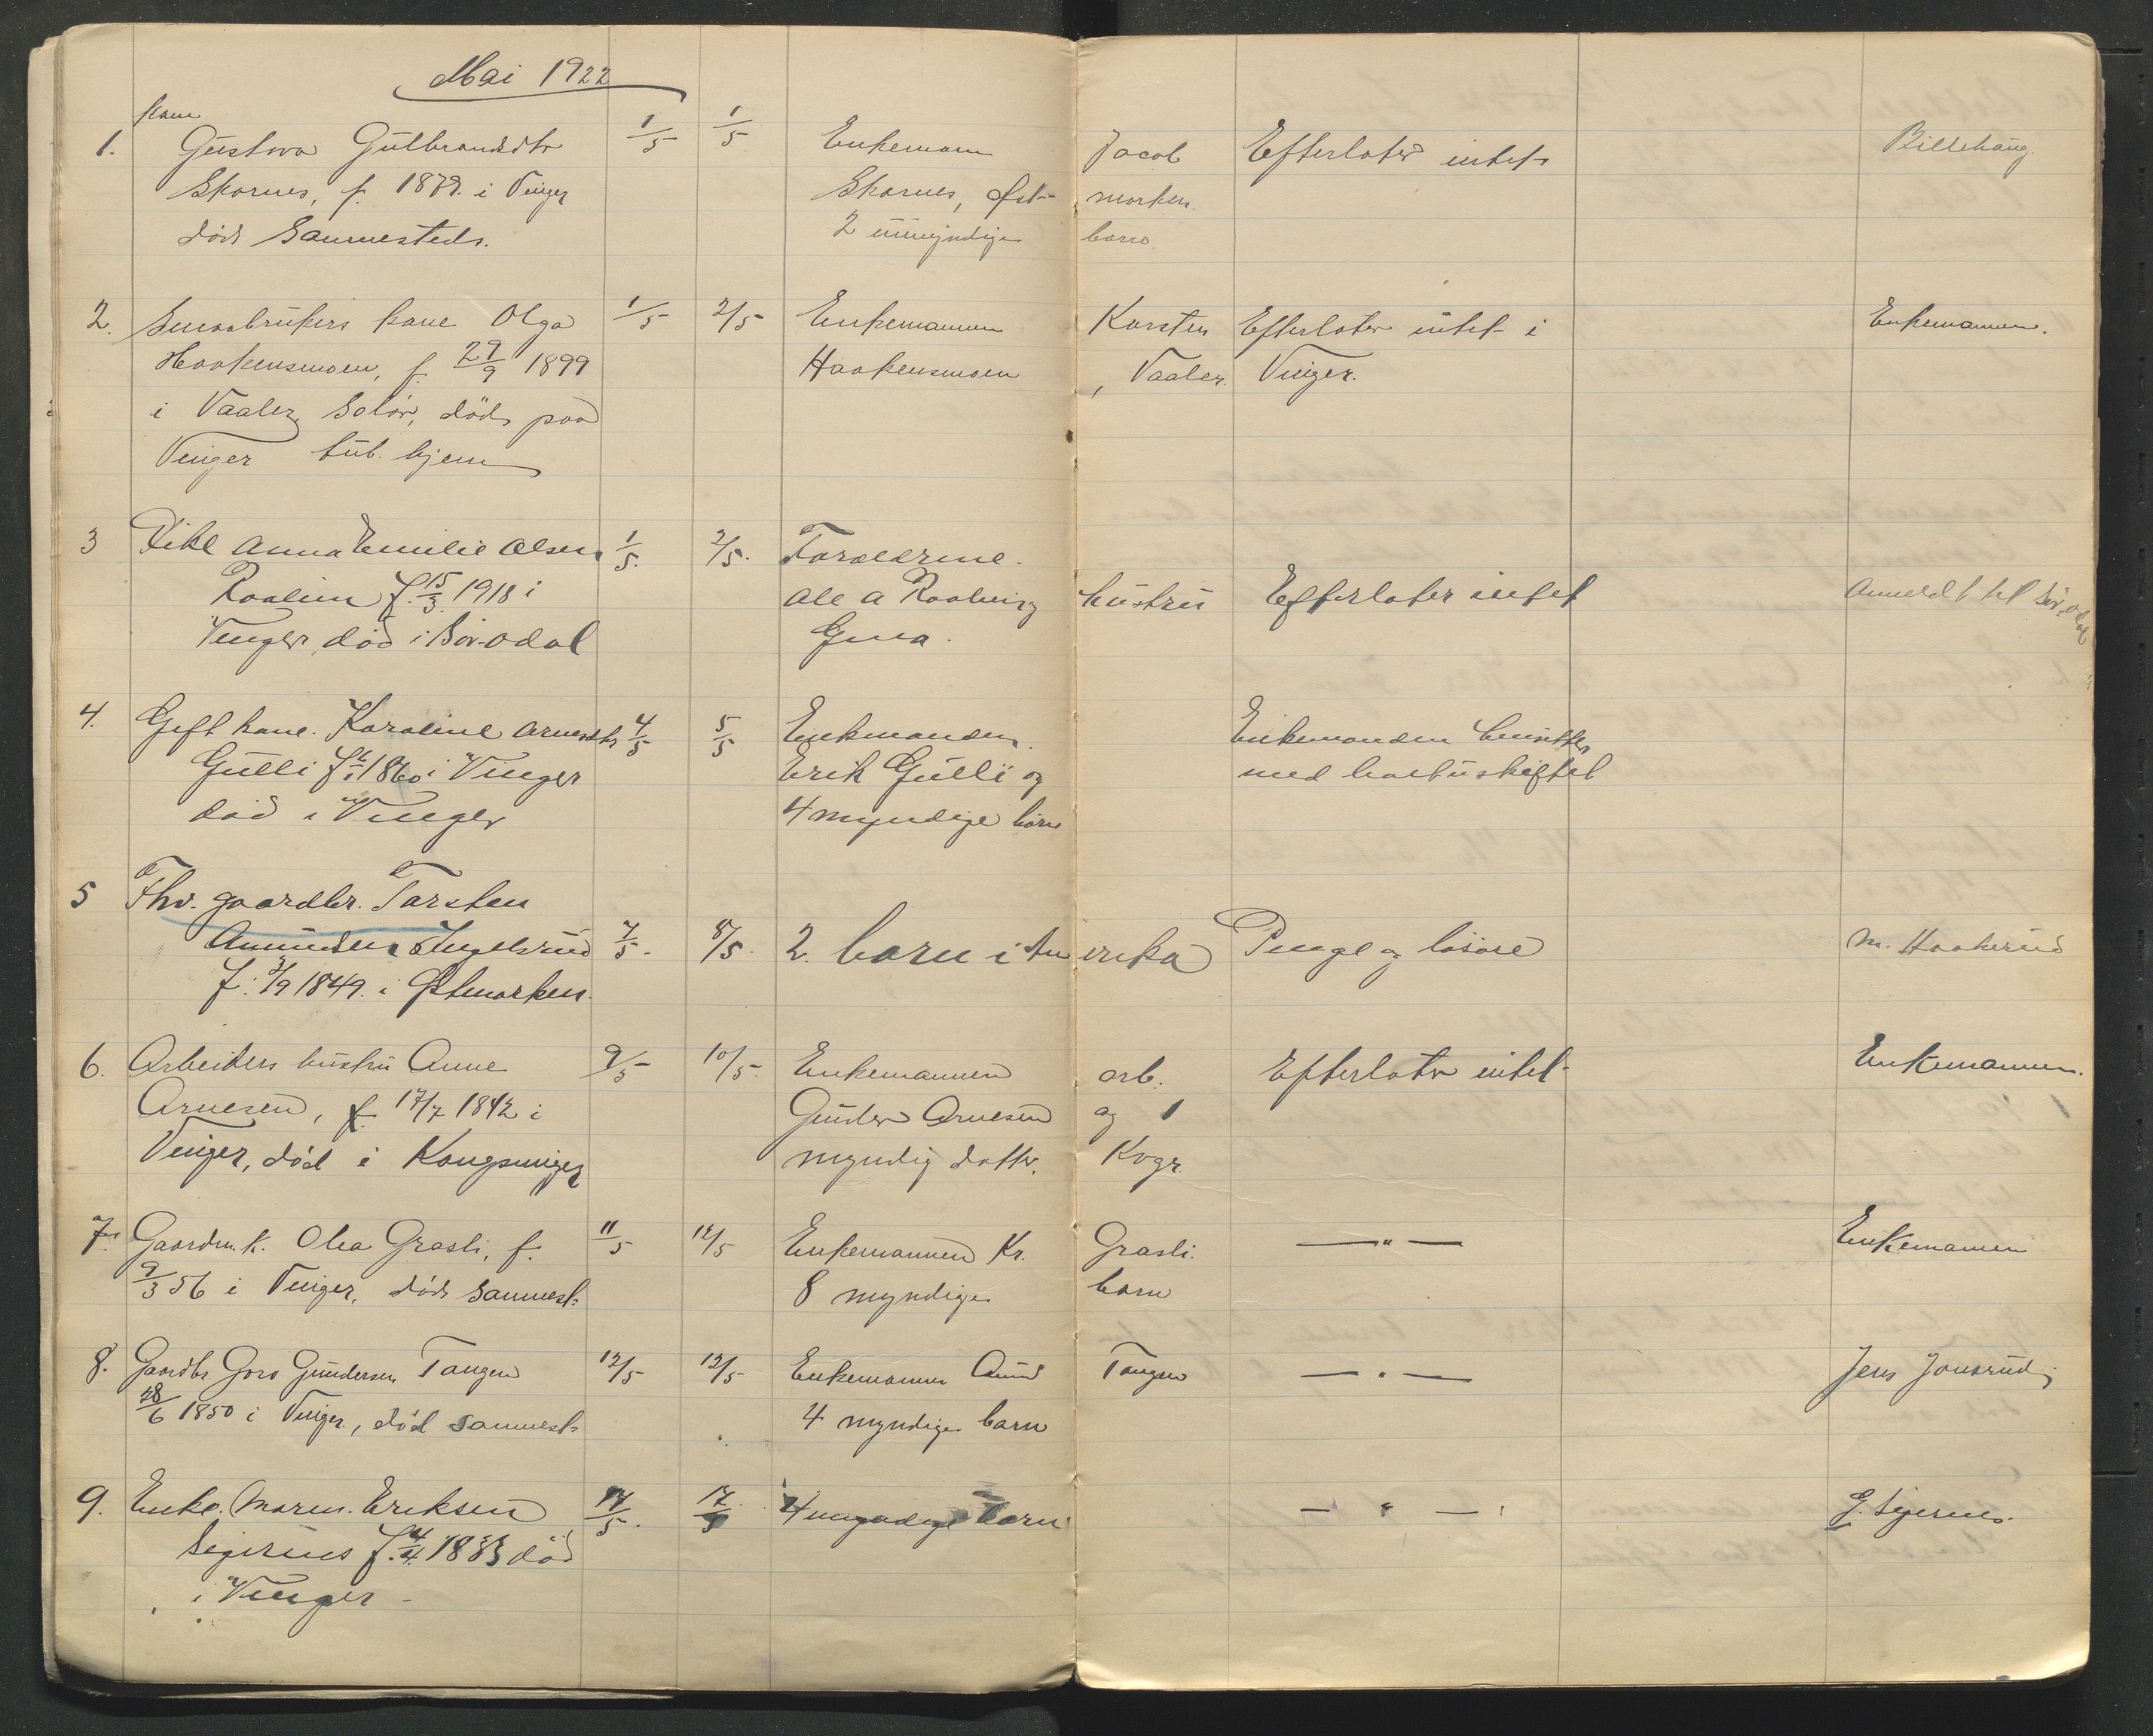 Mai 1922
kone
1. Gustava Gulbrandsdtr 1/5 1/5 Enkemann Jacob Efterlater intet
Skarnes, f. 1879 i Vinger Skarnes, Øst- marken
død sammesteds. 2 umyndige barn
2. Smaabrukers kone Olga 1/5 2/5 Enkemannen Karsten Efterlater intet i Enkemannen.
Haakensmoen, f. 29/9 1899 Haakensmoen, Vaaler. Vinger.
i Vaaler, Solør, død paa
Vinger tub. hjem
3 Pike Anna Emilie Olsen 1/5. 2/5. Forældrene.
f. 15/3 1918 i Ole A hustru Efterlater intet Anmeldt til Sør-Odal
Vinger, død i Sør-Odal Gina.
4. Gift kone. Karoline Arnesdtr 4/5 5/5 Enkemanden. Enkemanden
Gulli f. 1860 i Vinger Erik Gulli og med
død i Vinger 4 myndige børn
5 Fhv. gaardbr. Torsten
Amundsen Ingelsrud 7/5. 8/5. 2. barn i Amerika Penge og løsøre M. Haakerud
f. 1849. i Østmarken.
6. Arbeiders hustru Anne 9/5 10/5 Enkemannen arb. Efterlater intet Enkemannen.
Arnesen, f. 17/7 1842 i Gunder Arnesen og 1
Vinger, død i Kongsvinger myndig datter, Kvgr.
7. Gaardm. k. Olea Grasli, f. 11/5 12/5 Enkemannen Kr. Grasli. —"— Enkemannen
9/3 56 i Vinger, død sammest. 8 myndige barn
8. Gaardbr. Goro Gundersen Tangen 12/5 12/5 Enkemannen Amund Tangen —"— Jens Jonsrud
28/6 1850 i Vinger, død sammest. 4 myndige barn
9. Enke. Maren. Eriksen 17/5. 17/5 4 myndige barn —"—
f. 4/4 død
i Vinger